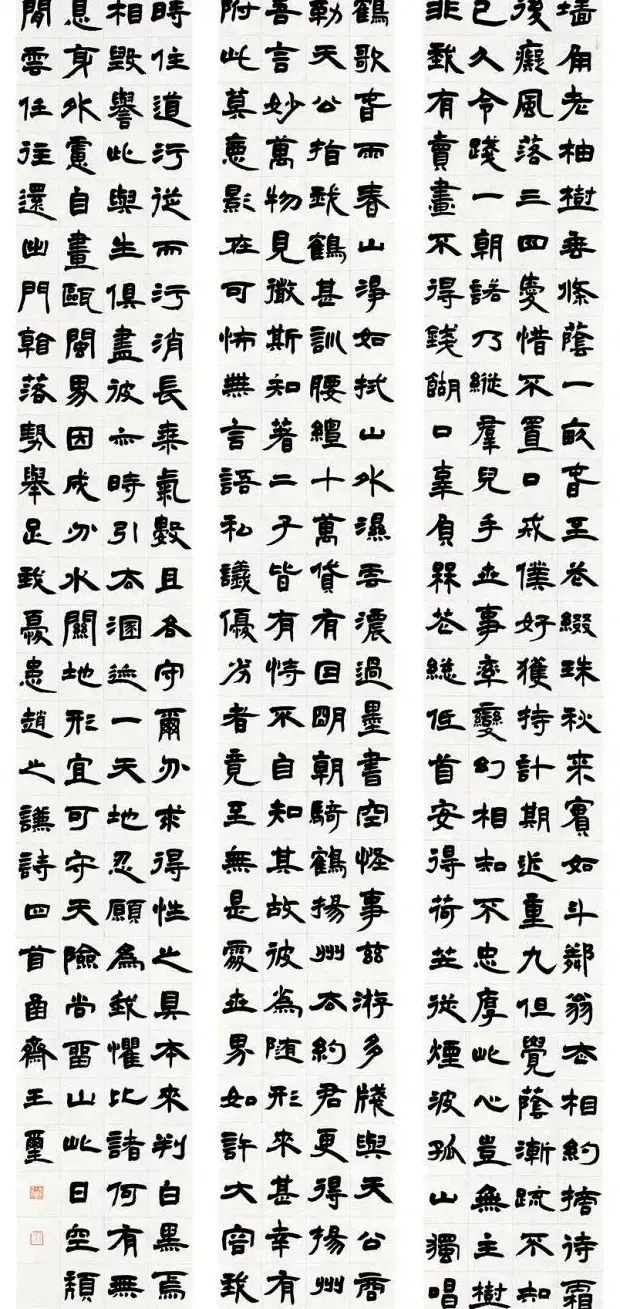 墻角老柚樹垂條蔭一畝春至花綴珠秋来實如斗鄰翁去相約擔待霜
後癡風落三四愛惜不置口戒僕好獲持計期近重九但覺蔭漸疏不知
已久今踐一朝諾乃縱羣兒手世事率變幻相知不忠厚此心豈無主樹
非我有賣畫不得錢餬口辜負罪花總低首安得荷芷從煙波孤山獨唱
鶴歌春雨春山淨如拭山水濕雲濃過墨書空怪事茲游多牋與天公商
勒天公指我鶴甚訓腰纏十萬貸有因明朝騎鶴揚州去約君更得揚州
吾言妙萬物見微斯知著二子皆有恃不自知其故彼為随形來甚幸有
附此莫惠影在可怖無言語私議優劣者竟至無是處世界如許大容我
時住道行從而行消長乘氣數且各守爾分求得性之真本來判白黑焉
相毀譽此與生俱盡彼亦時引去溷迹一天地忍願為我懼比諸何有無
息身外慮自畫甌閩界因成分水關地形宜可守天險尚留山此日空頹
閒雲任往還出門翰落勢舉足致憂患趙之謙詩四首缶齋王璽